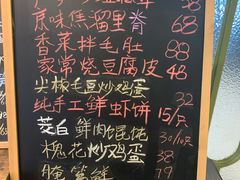 原味焦溜里脊 68
香菜拌毛肚 88
家常烧豆腐皮 48
尖椒毛豆炒鸡蛋 32
纯手工鲜虾饼 15/只
茭白鲜肉馄饨 30/10只
槐花炒鸡蛋 38
腌笃鲜 79